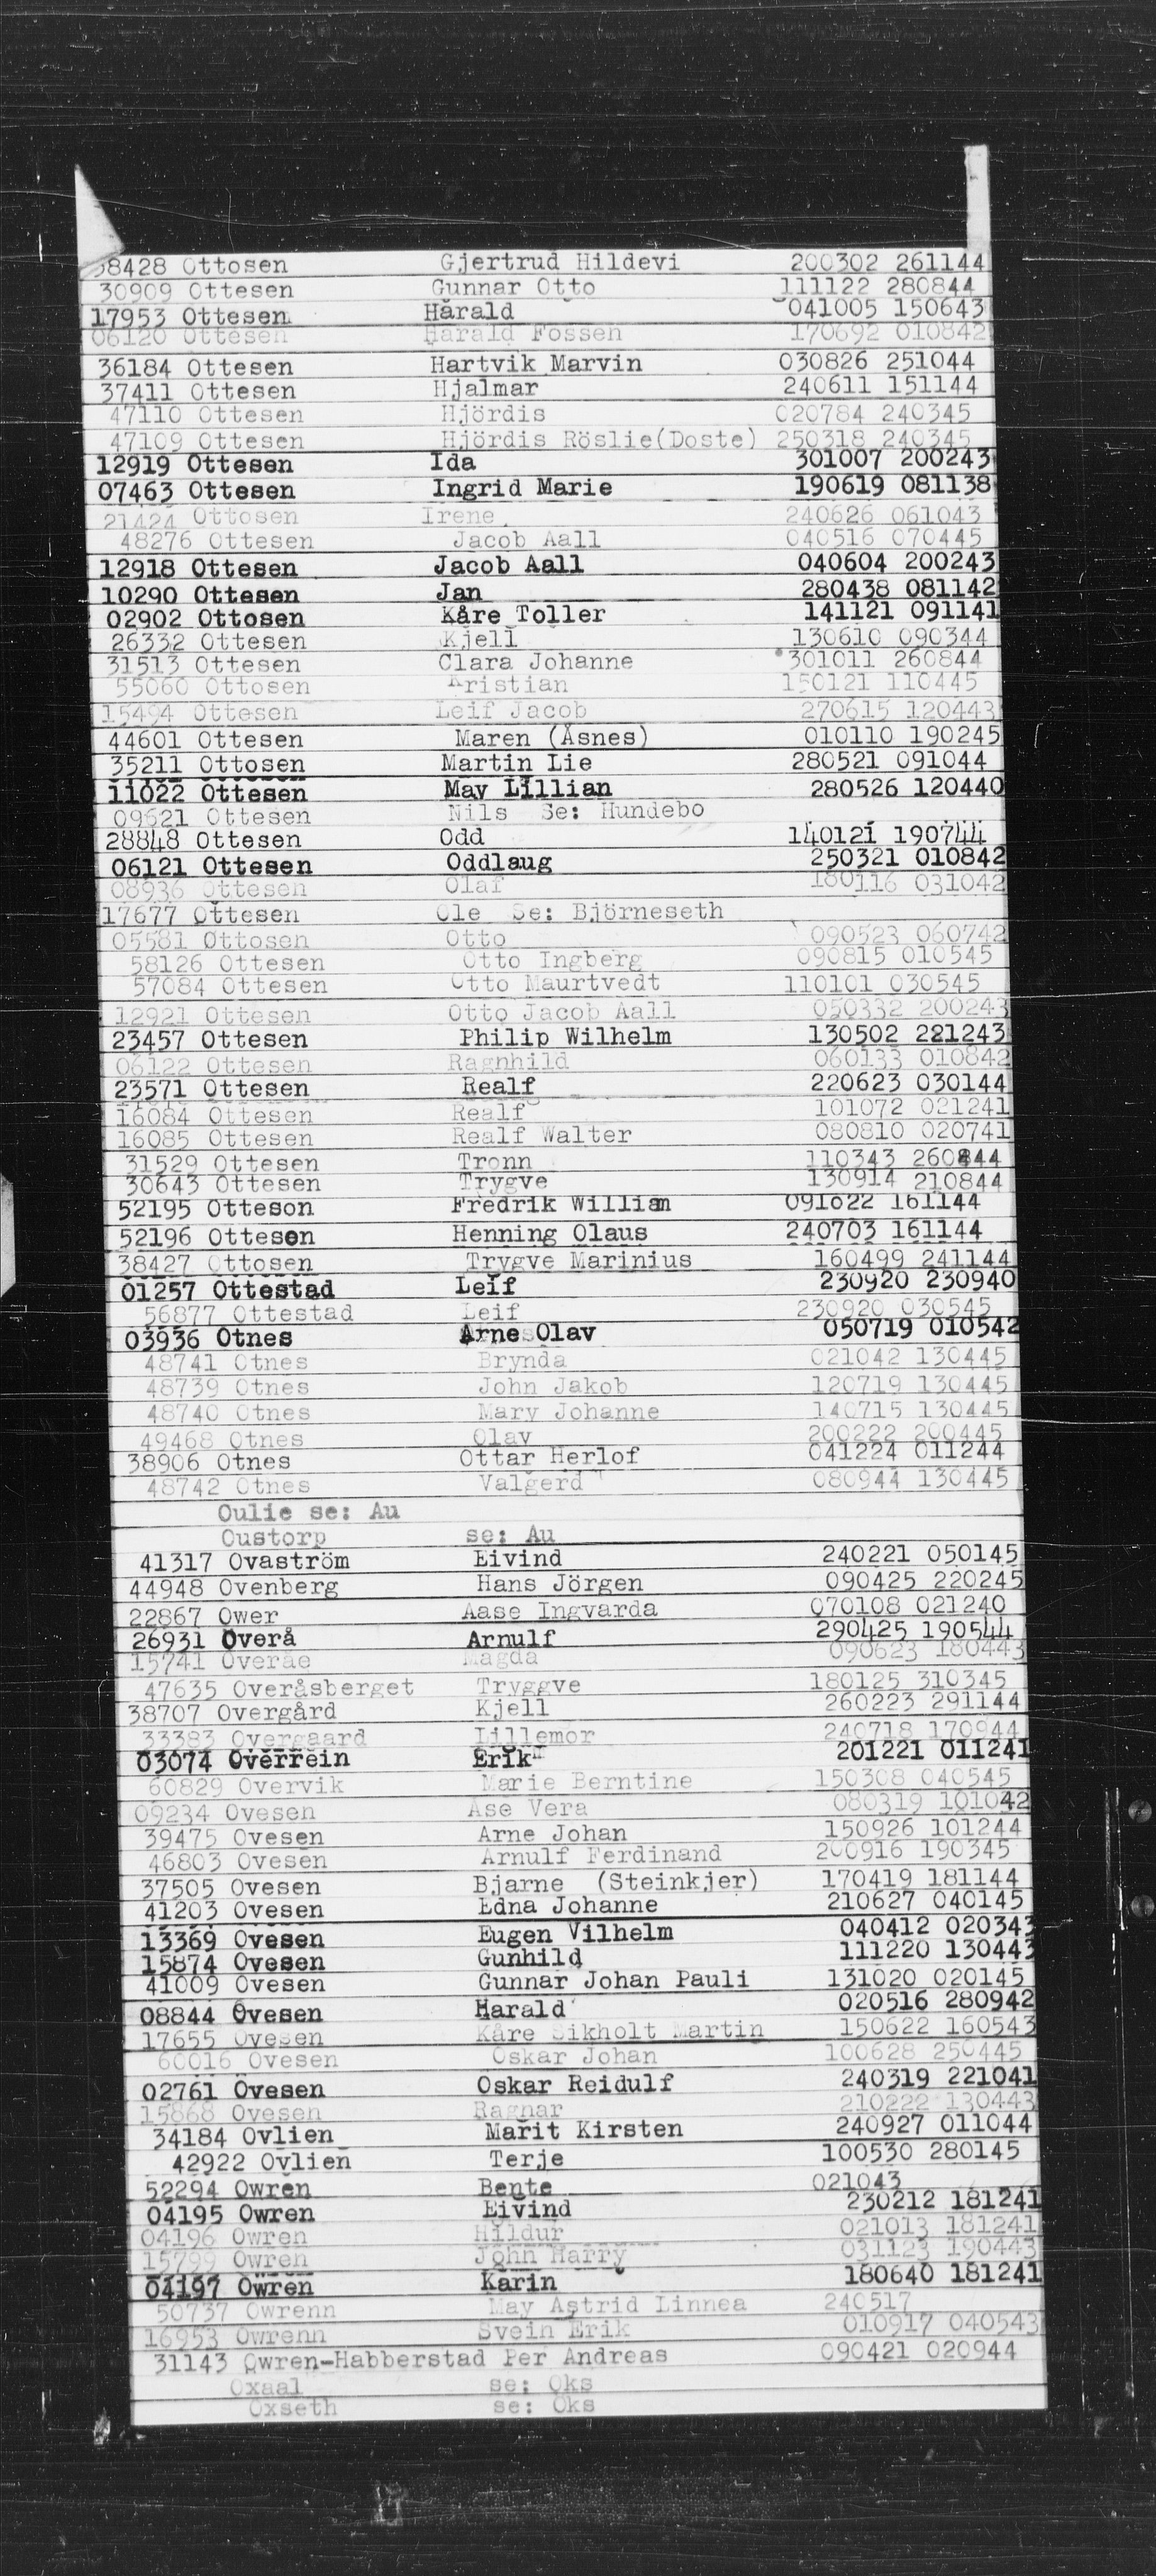 38428 Ottosen Gjertrud Hildevi 200302 261144
30909 Ottesen Gunnar Otto 111122 280844
17953 Ottesen Harald 041005 150643
06120 Ottesen Harald Fossen 170692 010842
36184 Ottesen Hartvik Marvin 030826 251044
37411 Ottesen Hjalmar 240611 151144
47110 Ottesen Hjördis 020784 240345
47109 Ottesen Hjördis Röslie(Doste) 250318 240345
12919 Ottesen Ida 301007 200243
07463 Ottesen Ingrid Marie 190619 081138
21424 Ottosen Irene 240626 061043
48276 Ottesen Jacob Aall 040516 070445
12918 Ottesen Jacob Aall 040604 200243
10290 Ottesen Jan 280438 081142
02902 Ottosen Kåre Toller 141121 091141
26332 Ottesen Kjell 130610 090344
31513 Ottesen Clara Johanne 301011 260844
55060 Ottosen Kristian 150121 110445
15494 Ottesen Leif Jacob 270615 120443
44601 Ottesen Maren (Åsnes) 010110 190245
35211 Ottosen Martin Lie 280521 091044
11022 Ottesen May Lillian 280526 120440
09621 Ottesen Nils Se: Hundebo
28848 Ottesen Odd 140121 190744
06121 Ottesen Oddlaug 250321 010842
08936 Ottesen Olaf 180116 031042
17677 Ottesen Ole Se: Björneseth
05581 Ottosen Otto 090523 060742
58126 Ottesen Otto Ingberg 090815 010545
57084 Ottesen Otto Maurtvedt 110101 030545
12921 Ottesen Otto Jacob Aall 050332 200243
23457 Ottesen Philip Wilhelm 130502 221243
06122 Ottesen Ragnhild 060133 010842
23571 Ottesen Realf 220623 030144
16084 Ottesen Realf 101072 021241
16085 Ottesen Realf Walter 080810 020741
31529 Ottesen Tronn 110343 260844
30643 Ottesen Trygve 130914 210844
52195 Otteson Fredrik William 091022 161144
52196 Ottesen Henning Olaus 240703 161144
38427 Ottosen Trygve Marinius 160499 241144
01257 Ottestad Leif 230920 230940
56877 Ottestad Leif 230920 030545
03936 Otnes Arne Olav 050719 010542
48741 Otnes Brynda 021042 130445
48739 Otnes John Jakob 120719 130445
48740 Otnes Mary Johanne 140715 130445
49468 Otnes Olav 200222 200445
38906 Otnes Ottar Herlof 041224 011244
48742 Otnes Valgerd 080944 130445
Oulie se: Au
Oustorp se: Au
41317 Ovaström Eivind 240221 050145
44948 Ovenberg Hans Jörgen 090425 220245
22867 Ower Aase Ingvarda 070108 021240
26931 Overå Arnulf 290425 190544
15741 Overae Magda 090623 180443
47635 Overåsberget Tryggve 180125 310345
38707 Overgård Kjell 260223 291144
33383 Overgaard Lillemor 240718 170944
03074 Overrein Erik 201221 011241
60829 Overvik Marie Berntine 150308 040545
09234 Ovesen Åse Vera 080319 101042
39475 Ovesen Arne Johan 150926 101244
46803 Ovesen Arnulf Ferdinand 200916 190345
37505 Ovesen Bjarne (Steinkjer) 170419 181144
41203 Ovesen Edna Johanne 210627 040145
13369 Ovesen Eugen Vilhelm 040412 020343
15874 Ovesen Gunhild 111220 130443
41009 Ovesen Gunnar Johan Pauli 131020 020145
08844 Ovesen Harald 020516 280942
17655 Ovesen Kåre Sikholt Martin 150622 160543
60016 Ovesen Oskar Johan 100628 250445
02761 Ovesen Oskar Reidulf 240319 221041
15868 Ovesen Ragnar 210222 130443
34184 Ovlien Marit Kirsten 240927 011044
42922 Ovlien Terje 100530 280145
52294 Owren Bente 021043
04195 Owren Eivind 230212 181241
04196 Owren Hildur 021013 181241
15799 Owren John Harry 031123 190443
04197 Owren Karin 180640 181241
50737 Owrenn May Astrid Linnea 240517
16953 Owrenn Svein Erik 010917 040543
31143 Owren-Habberstad Per Andreas 090421 020944
Oxaal se: Oks
Oxseth se: Oks